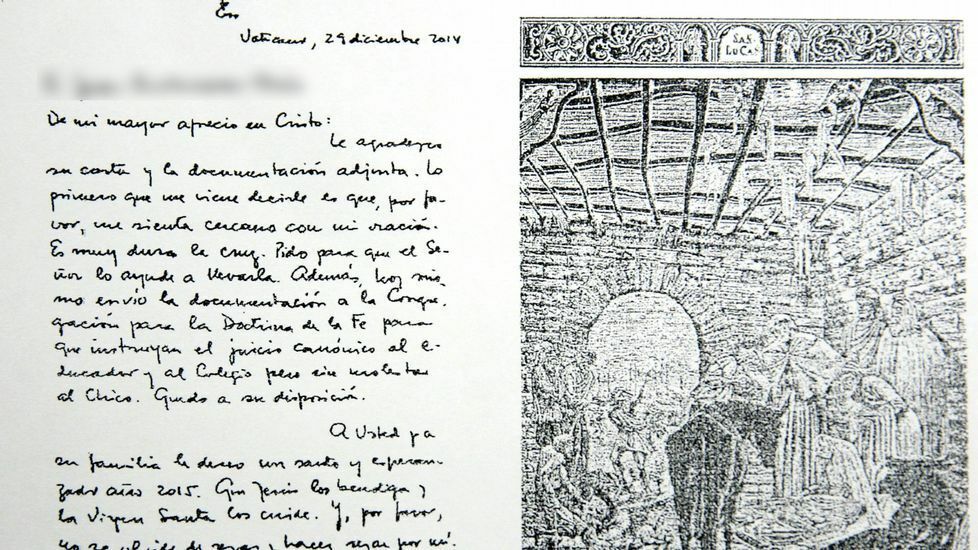 Vaticano, 29 diciembre 2014
De mi mayor aprecio en Cristo:
Le agradezco
su carta y la documentación adjunta. Lo
primero que me viene decirle es que, por fa-
vor, me sienta cercano con mi oración.
Es muy dura la cruz. Pido para que el Se-
ñor lo ayude a llevarla. Además, hoy mis-
mo envío la documentación a la Congre-
gación para la Doctrina de la Fe para
que instruyan el juicio canónico al e-
ducador y al Colegio pero sin molestar
al Chico. Quedo a su disposición.
A Usted ya
su familia le deseo un santo y esperan-
zador año 2015. Que Jesús los bendiga y
la Virgen Santa los cuide. Y, por favor,
no se olvide de rezar y hacer rezar por mí.
SAN
LUCAS